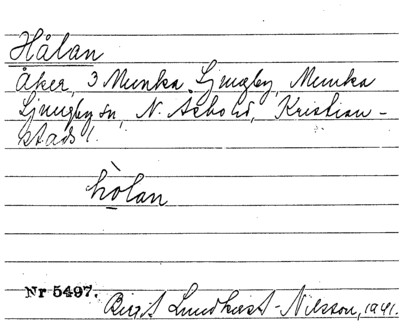 Hålan
Åker, 3 Munka Ljungby, Munka
Ljungby sn, N. Åsbo hd, Kristian-
stads l.
hò̲lan
Nr 5497.
Birgit Lundkvist-Nilsson, 1941.